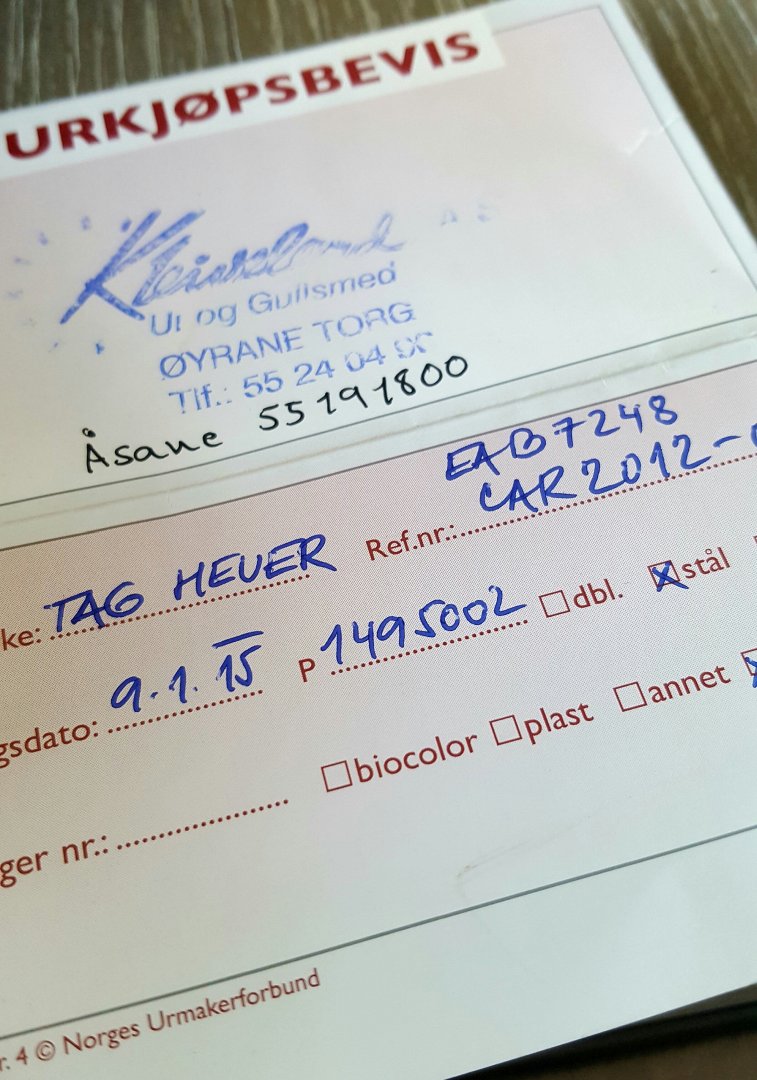 URKJØPSBEVIS
Kleiveland A S
Ur og Gullsmed
ØYRANE TORG
Tlf.: 55 24 04
Åsane 55191800
EAB7248
ke: TAG HEUER Ref.nr.: CAR2012-
gsdato: 9.1.15 P 1495002 dbl. stål
ger nr.: biocolor plast annet
r. 4 © Norges Urmakerforbund